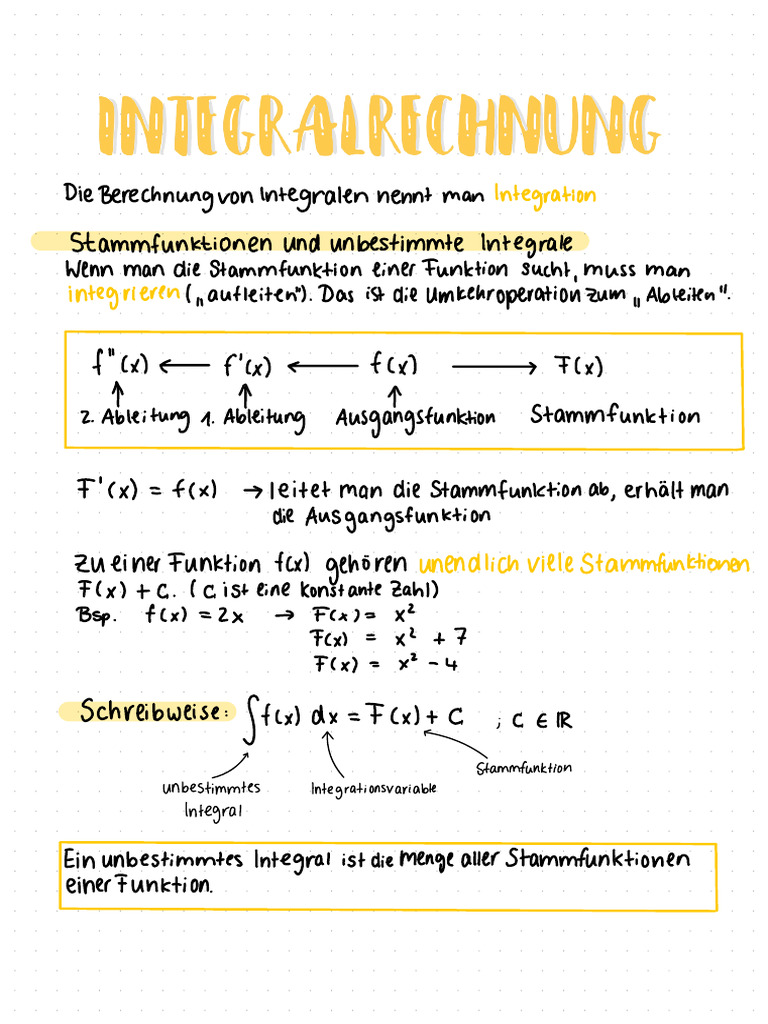 INTEGRALRECHNUNG
Die Berechnung von Integralen nennt man Integration
Stammfunktionen und unbestimmte Integrale
Wenn man die Stammfunktion einer Funktion sucht, muss man
integrieren („aufleiten"). Das ist die Umkehroperation zum „Ableiten".
f''(x) ← f'(x) ← f(x) → F(x)
↑ ↑ ↑
2. Ableitung 1. Ableitung Ausgangsfunktion Stammfunktion
F'(x) = f(x) → leitet man die Stammfunktion ab, erhält man
die Ausgangsfunktion
Zu einer Funktion f(x) gehören unendlich viele Stammfunktionen
F(x) + C. (C ist eine konstante Zahl)
Bsp. f(x) = 2x → F(x) = x²
F(x) = x² + 7
F(x) = x² - 4
Schreibweise: ∫f(x) dx = F(x) + C ; C ∈ ℝ
Stammfunktion
unbestimmtes Integrationsvariable
Integral
Ein unbestimmtes Integral ist die Menge aller Stammfunktionen
einer Funktion.